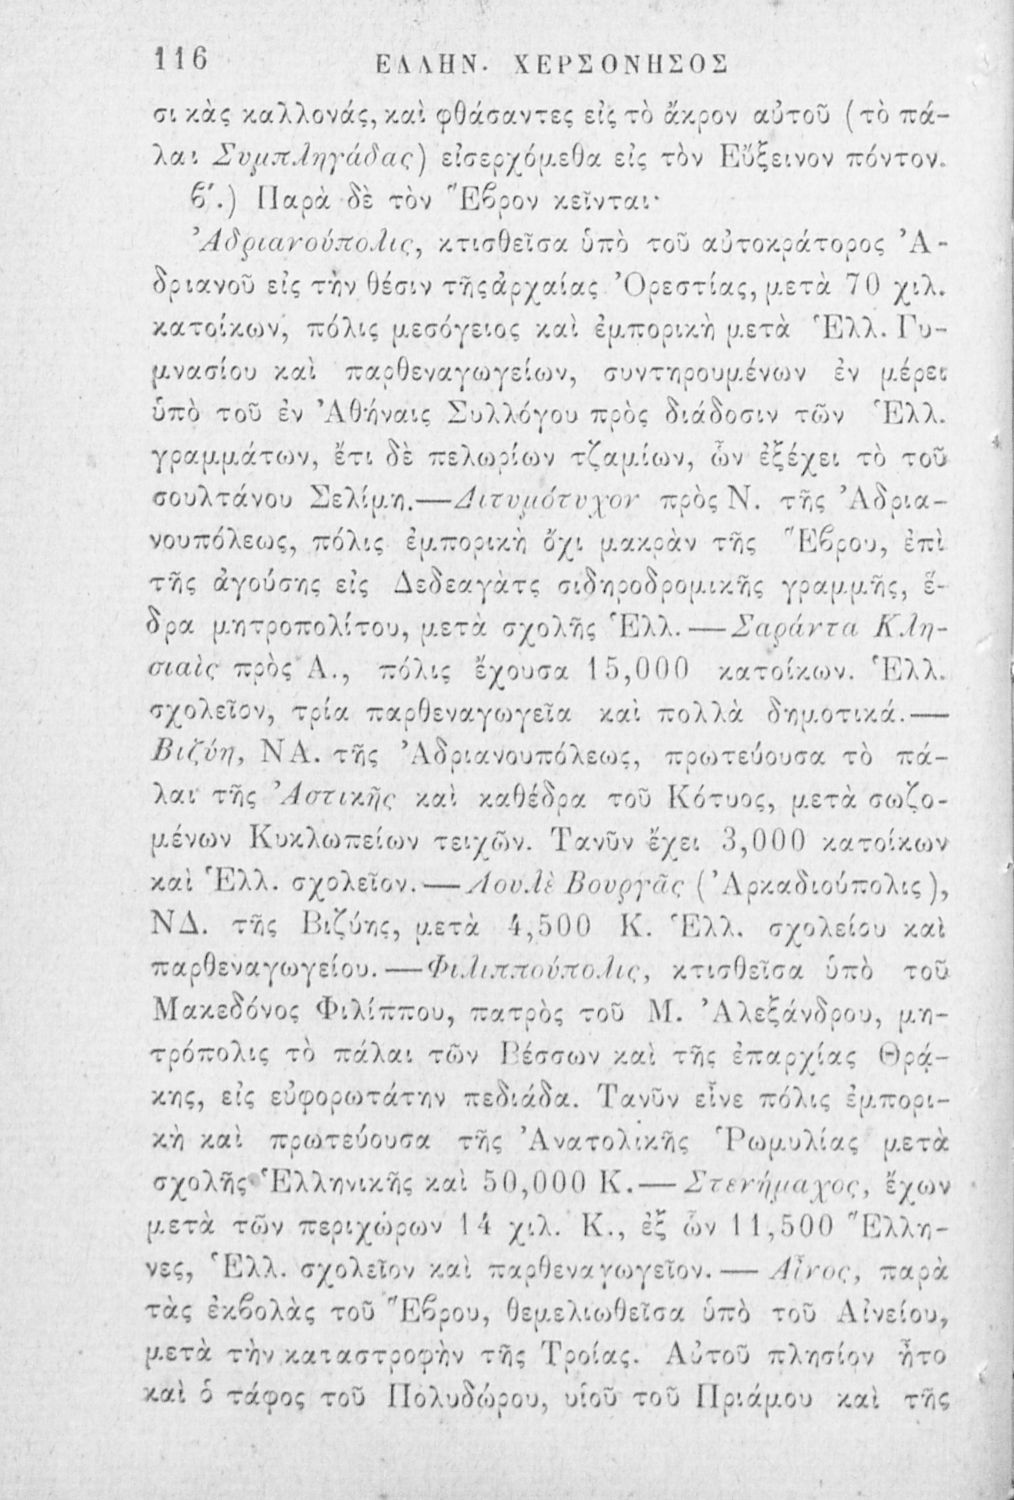 116 ΕΛΛΗΝ. ΧΕΡΣΟΝΗΣΟΣ
σικὰς καλλονάς, καὶ φθάσαντες εἰς τὸ ἄκρον αὐτοῦ (τὸ πά-
λαι Συμπληγάδας) εἰσερχόμεθα εἰς τὸν Εὔξεινον πόντον.
ϐ΄.) Παρὰ δὲ τὸν Ἕϐρον κεῖνται·
Ἀδριανούπολις, κτισθεῖσα ὑπὸ τοῦ αὐτοκράτορος Ἀ-
δριανοῦ εἰς τὴν θέσιν τῆς ἀρχαίας Ὀρεστίας, μετὰ 70 χιλ.
κατοίκων, πόλις μεσόγειος καὶ ἐμπορικὴ μετὰ Ἑλλ. Γυ-
μνασίου καὶ παρθεναγωγείων, συντηρουμένων ἐν μέρει
ὑπὸ τοῦ ἐν Ἀθήναις Συλλόγου πρὸς διάδοσιν τῶν Ἑλλ.
γραμμάτων, ἔτι δὲ πελωρίων τζαμίων, ὧν ἐξέχει τὸ τοῦ
σουλτάνου Σελίμη.—Διτυμότυχον πρὸς Ν. τῆς Ἀδρια-
νουπόλεως, πόλις ἐμπορικὴ ὄχι μακρὰν τῆς Ἕϐρου, ἐπὶ
τῆς ἀγούσης εἰς Δεδεαγὰτς σιδηροδρομικῆς γραμμῆς, ἕ-
δρα μητροπολίτου, μετὰ σχολῆς Ἑλλ.—Σαράντα Κλη-
σιαὶς πρὸς Α., πόλις ἔχουσα 15,000 κατοίκων. Ἑλλ.
σχολεῖον, τρία παρθεναγωγεῖα καὶ πολλὰ δημοτικά.—
Βιζύη, ΝΑ. τῆς Ἀδριανουπόλεως, πρωτεύουσα τὸ πά-
λαι τῆς Ἀστικῆς καὶ καθέδρα τοῦ Κότυος, μετὰ σωζο-
μένων Κυκλωπείων τειχῶν. Τανῦν ἔχει 3,000 κατοίκων
καὶ Ἑλλ. σχολεῖον.—Λουλὲ Βουργᾶς (Ἀρκαδιούπολις),
ΝΔ. τῆς Βιζύης, μετὰ 4,500 Κ. Ἑλλ. σχολείου καὶ
παρθεναγωγείου.—Φιλιππούπολις, κτισθεῖσα ὑπὸ τοῦ
Μακεδόνος Φιλίππου, πατρὸς τοῦ Μ. Ἀλεξάνδρου, μη-
τρόπολις τὸ πάλαι τῶν Βέσσων καὶ τῆς ἐπαρχίας Θρᾴ-
κης, εἰς εὐφορωτάτην πεδιάδα. Τανῦν εἶνε πόλις ἐμπορι-
κὴ καὶ πρωτεύουσα τῆς Ἀνατολικῆς Ῥωμυλίας μετὰ
σχολῆς Ἑλληνικῆς καὶ 50,000 Κ.—Στενήμαχος, ἔχων
μετὰ τῶν περιχώρων 14 χιλ. Κ., ἐξ ὧν 11,500 Ἕλλη-
νες, Ἑλλ. σχολεῖον καὶ παρθεναγωγεῖον.— Αἶνος, παρὰ
τὰς ἐκϐολὰς τοῦ Ἕϐρου, θεμελιωθεῖσα ὑπὸ τοῦ Αἰνείου,
μετὰ τὴν καταστροφὴν τῆς Τροίας. Αὐτοῦ πλησίον ἦτο
καὶ ὁ τάφος τοῦ Πολυδώρου, υἱοῦ τοῦ Πριάμου καὶ τῆς